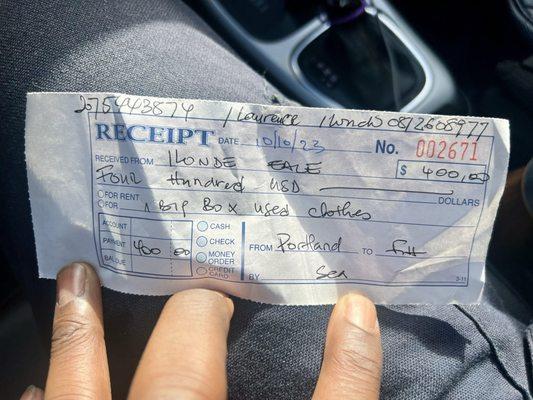 2075443874 / Laurence
RECEIPT DATE 10/10/23 No. 002671
RECEIVED FROM ILONDE $ 400,00
Four Hundred USD DOLLARS
FOR RENT
FOR 1 Big Box used clothes
ACCOUNT CASH
PAYMENT 400 00 CHECK FROM Portland TO
BAL. DUE MONEY ORDER
CREDIT CARD BY Sea
3-11